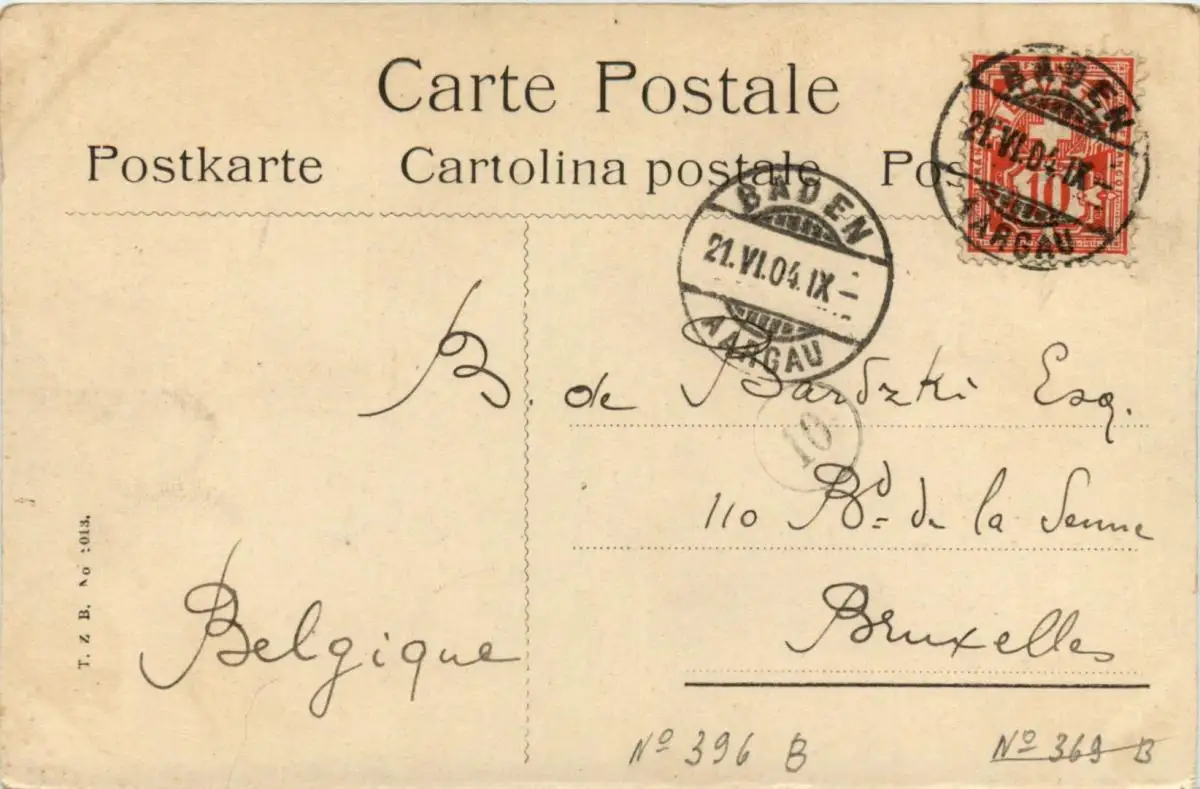 Carte Postale
Postkarte Cartolina postale Po
BADEN
21.VI.04.IX–
AARGAU
10
BADEN
21.VI.04.IX–
AARGAU
B. de Bardzki Esq.
10
110 Bd. de la Senne
Bruxelles
Belgique
T. Z. B. No
No 396 B
No 369 B